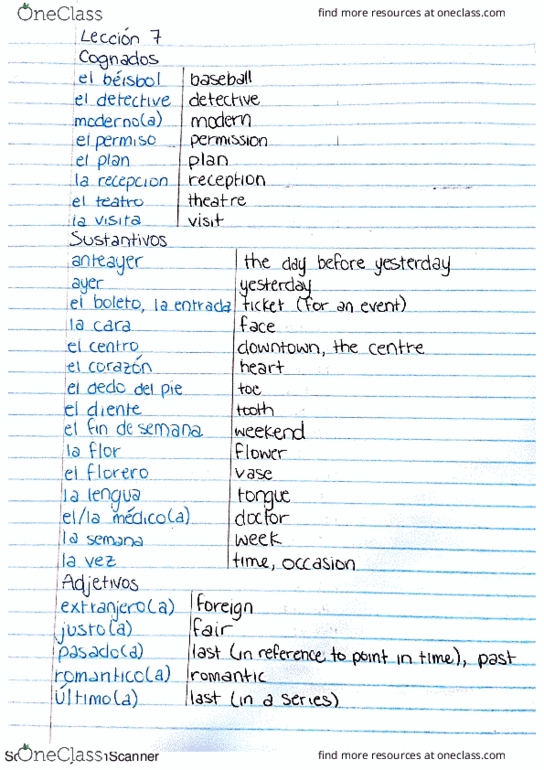 OneClass find more resources at oneclass.com
Lección 7
Cognados
el béisbol baseball
el detective detective
moderno(a) modern
el permiso permission
el plan plan
la recepcion reception
el teatro theatre
la visita visit
Sustantivos
anteayer the day before yesterday
ayer yesterday
el boleto, la entrada ticket (for an event)
la cara face
el centro downtown, the centre
el corazón heart
el dedo del pie toe
el diente tooth
el fin de semana weekend
la flor flower
el florero vase
la lengua tongue
el/la médico(a) doctor
la semana week
la vez time, occasion
Adjetivos
extranjero(a) foreign
justo(a) fair
pasado(a) last (in reference to point in time), past
romantico(a) romantic
último(a) last (in a series)
OneClass Scanner find more resources at oneclass.com